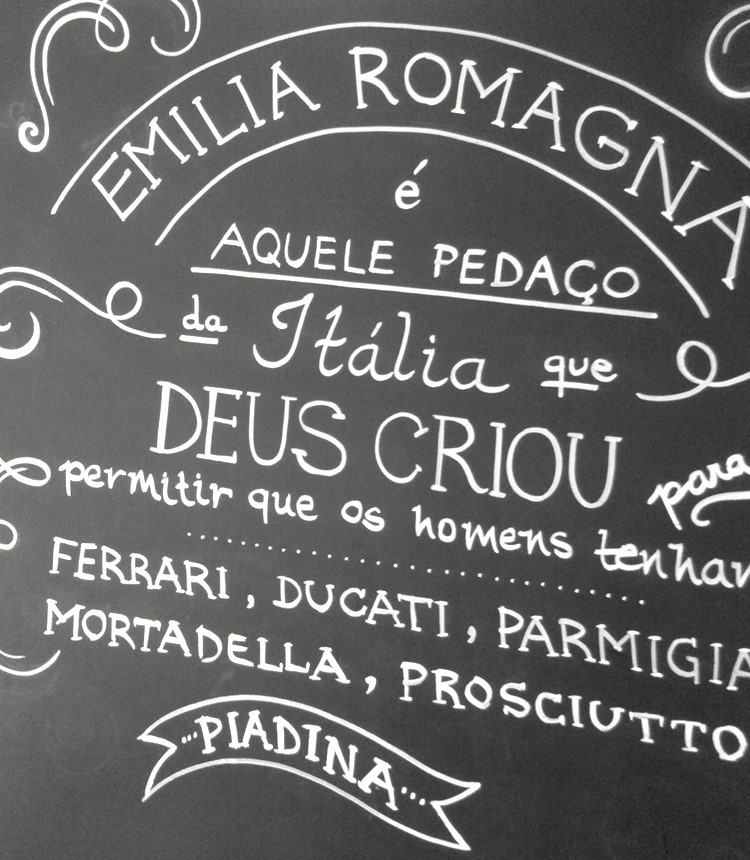 EMILIA ROMAGNA
é
AQUELE PEDAÇO
da Itália que
DEUS CRIOU para
permitir que os homens tenham
FERRARI, DUCATI, PARMIGIA
MORTADELLA, PROSCIUTTO
...PIADINA...